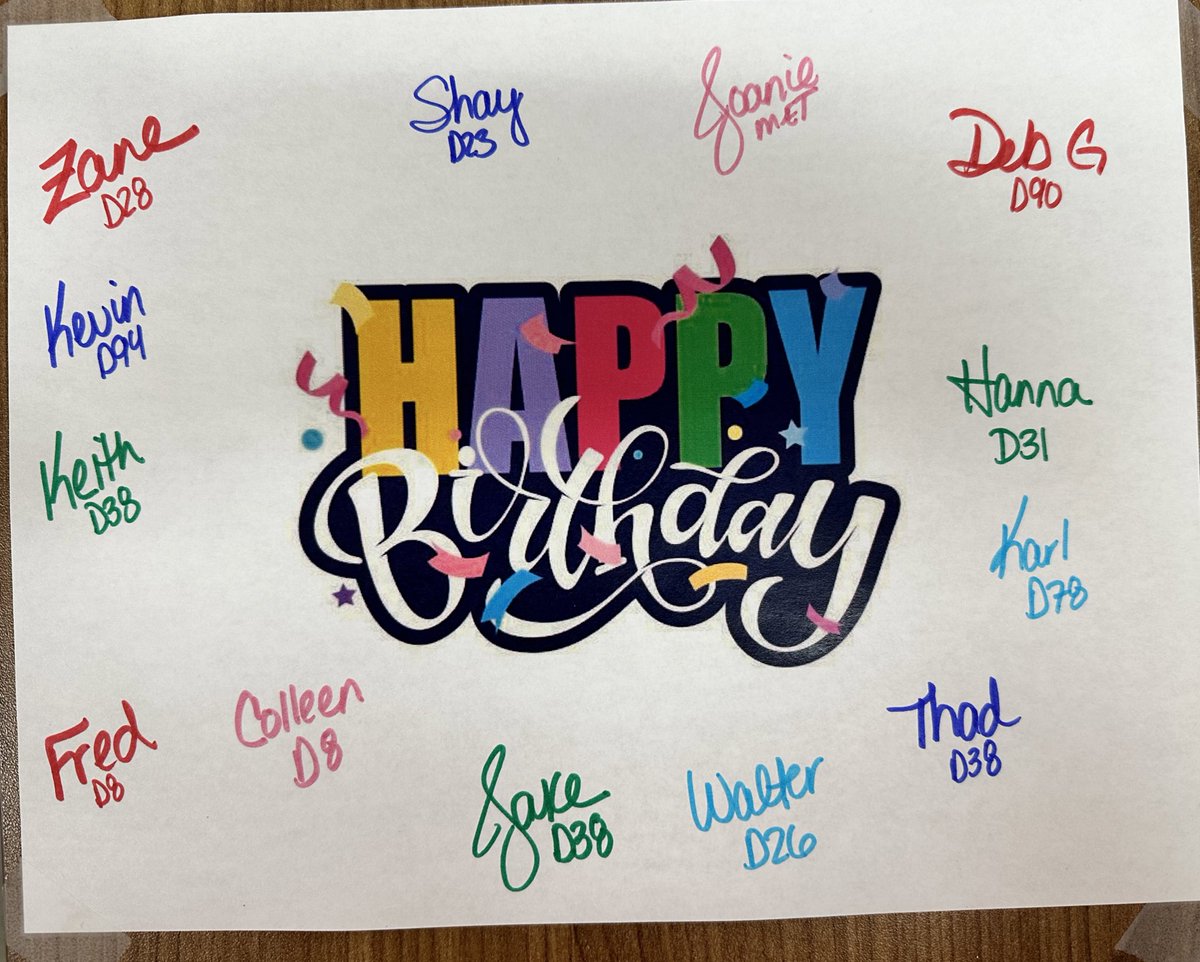 Shay
D23
Joanie
MET
Zane
D28
Deb G
D90
Kevin
D94
HAPPY
Birthday
Hanna
D31
Keith
D38
Karl
D78
Fred
D8
Colleen
D8
Thad
D38
Jake
D38
Walter
D26